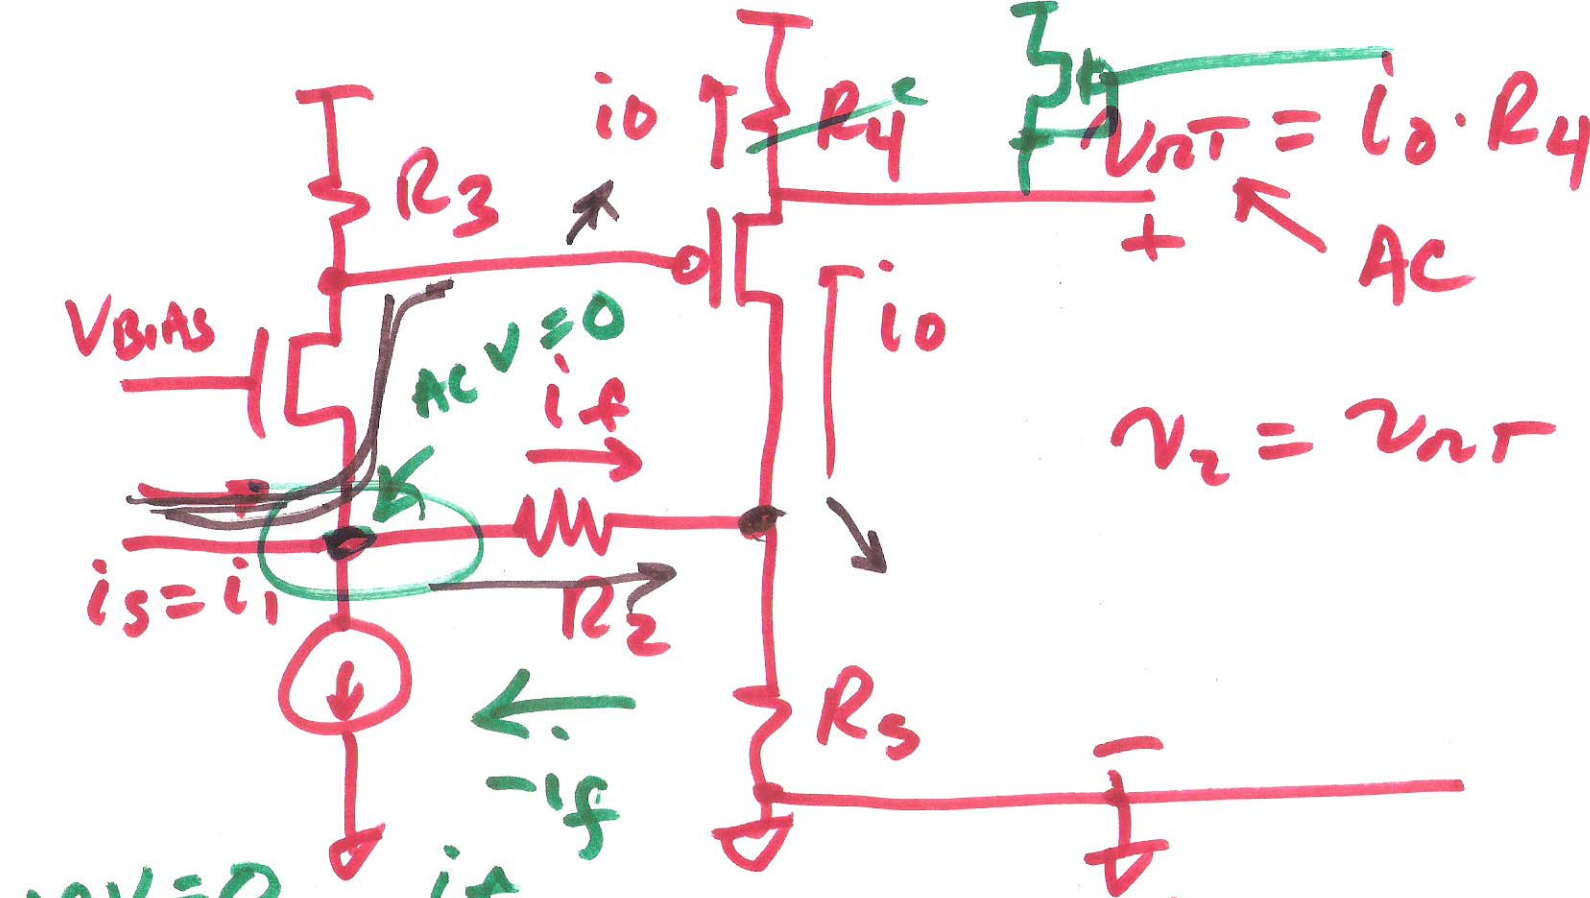 io
R4
vout = io·R4
R3
+
AC
VBIAS
AC v=0
io
if
v2 = vout
is=i1
R2
R5
-if
−
v=0
if